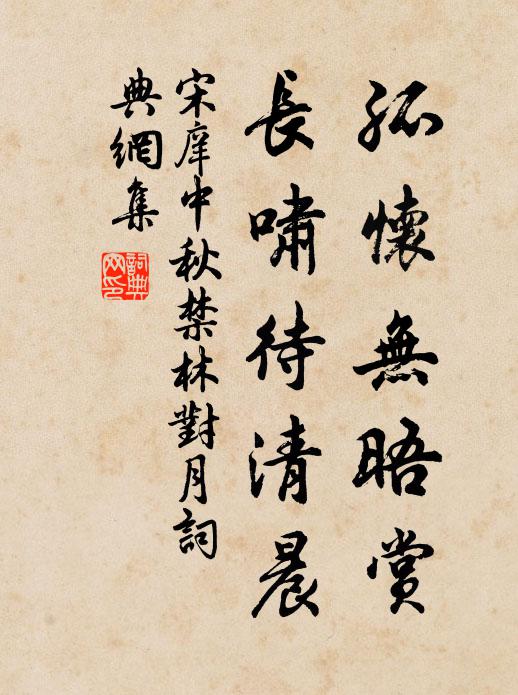 孤懷無晤賞
長嘯待清晨
宋庠中秋禁林對月詞
典網集
詞典網印